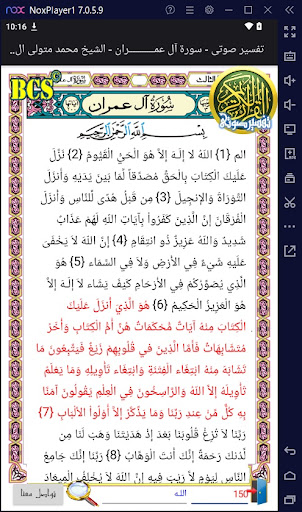 NoxPlayer1 7.0.5.9
10:16
تفسير صوتى - سورة آل عمـــــــــران - الشيخ محمد متولى ال..
BCS
الثالث
سُورَةُ آل عمران
القرآن الكريم
تفسير صوتى
بِسْمِ اللَّهِ الرَّحْمَنِ الرَّحِيمِ
الم {1} اللّهُ لا إِلَـهَ إِلاَّ هُوَ الْحَيُّ الْقَيُّومُ {2} نَزَّلَ
عَلَيْكَ الْكِتَابَ بِالْحَقِّ مُصَدِّقاً لِّمَا بَيْنَ يَدَيْهِ وَأَنزَلَ
التَّوْرَاةَ وَالإِنجِيلَ {3} مِن قَبْلُ هُدًى لِّلنَّاسِ وَأَنزَلَ
الْفُرْقَانَ إِنَّ الَّذِينَ كَفَرُواْ بِآيَاتِ اللّهِ لَهُمْ عَذَابٌ
شَدِيدٌ وَاللّهُ عَزِيزٌ ذُو انتِقَامٍ {4} إِنَّ اللّهَ لاَ يَخْفَىَ
عَلَيْهِ شَيْءٌ فِي الأَرْضِ وَلاَ فِي السَّمَاء {5} هُوَ
الَّذِي يُصَوِّرُكُمْ فِي الأَرْحَامِ كَيْفَ يَشَاءُ لاَ إِلَـهَ إِلاَّ
هُوَ الْعَزِيزُ الْحَكِيمُ {6} هُوَ الَّذِيَ أَنزَلَ عَلَيْكَ
الْكِتَابَ مِنْهُ آيَاتٌ مُّحْكَمَاتٌ هُنَّ أُمُّ الْكِتَابِ وَأُخَرُ
مُتَشَابِهَاتٌ فَأَمَّا الَّذِينَ في قُلُوبِهِمْ زَيْغٌ فَيَتَّبِعُونَ مَا
تَشَابَهَ مِنْهُ ابْتِغَاء الْفِتْنَةِ وَابْتِغَاء تَأْوِيلِهِ وَمَا يَعْلَمُ
تَأْوِيلَهُ إِلاَّ اللّهُ وَالرَّاسِخُونَ فِي الْعِلْمِ يَقُولُونَ آمَنَّا
بِهِ كُلٌّ مِّنْ عِندِ رَبِّنَا وَمَا يَذَّكَّرُ إِلاَّ أُوْلُواْ الألْبَابِ {7}
رَبَّنَا لاَ تُزِغْ قُلُوبَنَا بَعْدَ إِذْ هَدَيْتَنَا وَهَبْ لَنَا مِن
لَّدُنكَ رَحْمَةً إِنَّكَ أَنتَ الْوَهَّابُ {8} رَبَّنَا إِنَّكَ جَامِعُ
النَّاسِ لِيَوْمٍ لاَّ رَيْبَ فِيهِ إِنَّ اللّهَ لاَ يُخْلِفُ الْمِيعَادَ
تواصل معنا
الله
150